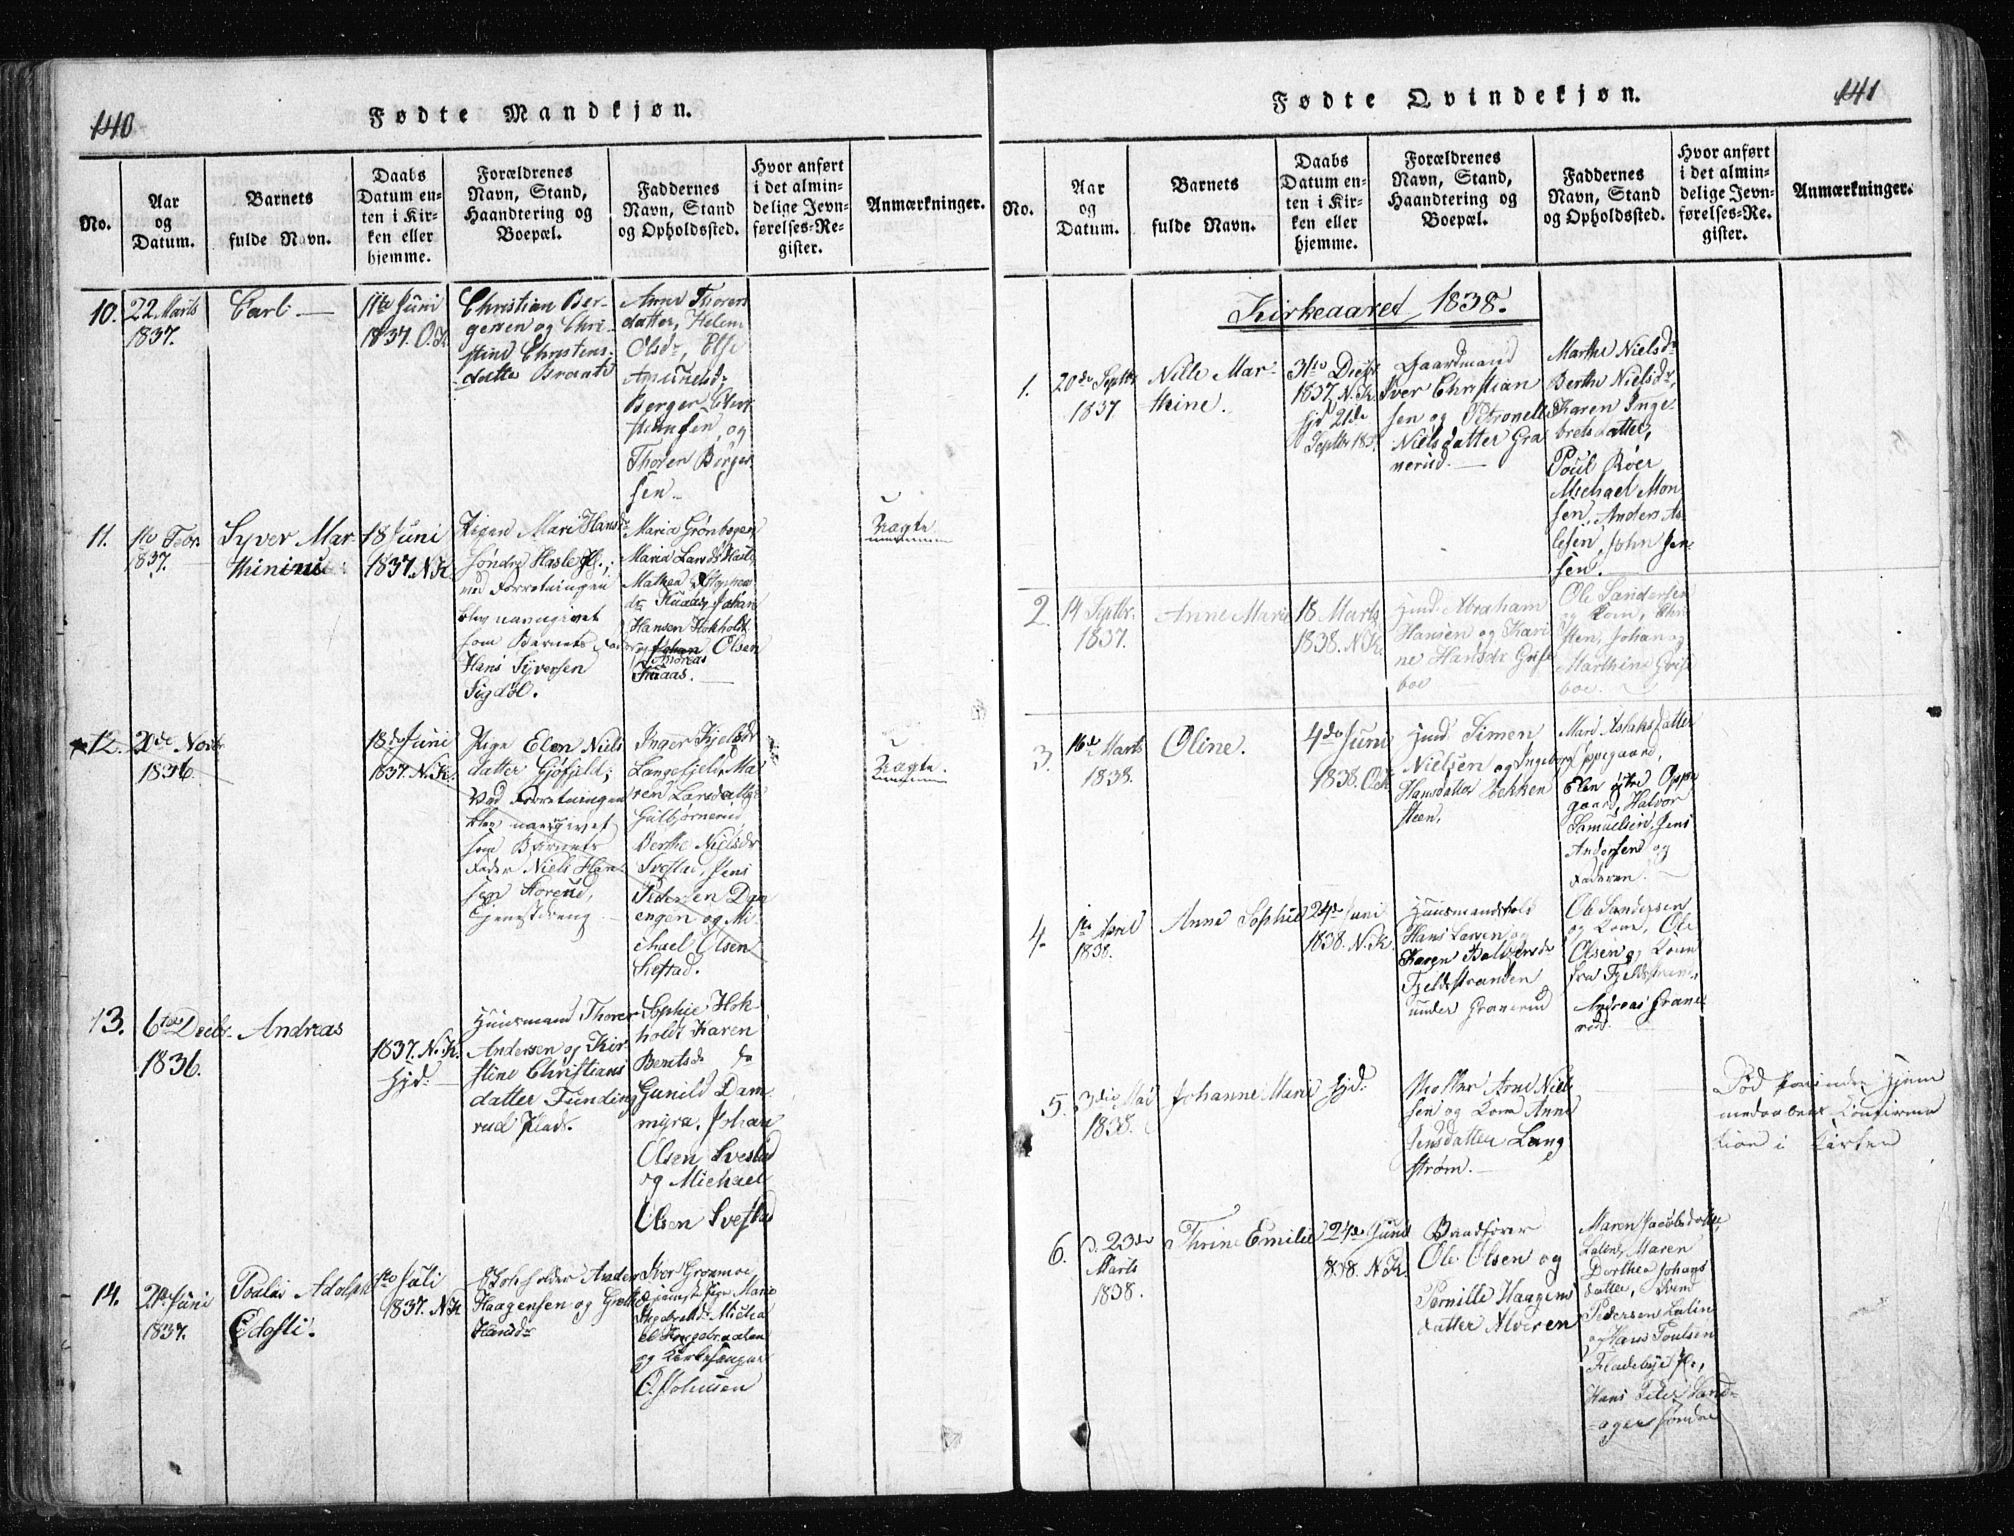 140
Fødte Mandkjøn.
No.
Aar
og
Datum.
Barnets
fulde Navn.
Daabs
Datum en-
ten i Kir-
ken eller
hjemme.
Forældrenes
Navn, Stand,
Haandtering og
Boepæl.
Faddernes
Navn, Stand
og Opholdssted.
Hvor anført
i det almin-
delige Jevn-
førelses-Re-
gister.
Anmærkninger.
10.
22 Marts
1837.
Carl
11te Juni
1837. O.K
Christian Ber-
gersen og Chri-
stine Christens-
datter
Anne Thoren
datter, Helene
Olsdr, Else
Amundsd
Berger Chri
stensen, og
Thoren Berger
sen
11.
1te Febr.
1837.
Syver Mar
thinius
18 Juni
1837. N.K
Pigen Mari Hansdr
Søndre Hasle Pl.;
ved Forretningen
blev navngivet
som Barnets Fader
Hans Syversen
Sigdøl.
Maria Grønbogen
Maria Larsdr Hasle
Mathea
dr Knaas, Johan
Hansen Hokholdt
og Johan Olsen
Andreas
Knaas.
Uægte
12.
2de Novbr
1836.
18de Juni
1837. N.K.
Pige Elen Niels
datter Gjøfjeld;
Ved Forretningen
blev navngivet
som Barnets
Fader Niels Han-
sen
Tjenestdreng
Inger Kjelsdr
Langefjeld, Ma
ren Larsdatter
Gulbjørnerud,
Berthe Nielsdr
Svestad, Jens
Pedersen
engen og Mi-
chael Olsen
Svestad.
Uægte.
13.
6te Decbr.
1836.
Andreas
1837. N.K.
hjd:
Huusmand Thorer
Andersen og Kir-
stine Christians
datter Funding
rud Plads.
Sophie Hok-
holdt Karen
Berntsdr do
Gunild Dam
myra, Johan
Olsen Svestad
og Michael
Olsen Svestad
14.
2de Juni
1837.
Adolph
1te Juli
1837. N.K
Skoleholder Ander
Haagensen og Grethe
Hansdr
Iver Granmoe
Pige Marie
Ingebretsdr Micha
el
og Kirkesanger
O. Johnsen
Fødte Qvindekjøn.
141
No.
Aar
og
Datum.
Barnets
fulde Navn.
Daabs
Datum en-
ten i Kir-
ken eller
hjemme.
Forældrenes
Navn, Stand,
Haandtering og
Boepæl.
Faddernes
Navn, Stand
og Opholdssted.
Hvor anført
i det almin-
delige Jevn-
førelses-Re-
gister.
Anmærkninger.
Kirkeaaret 1838.
1.
20de Septbr
1837
Nille Mar-
thine.
3te Decbr
1837. N.K.
hjd 21de
Septbr 1837.
Gaardmand
Iver Christian
sen og Petronelle
Nielsdatter Gra
nerud.
Marthe Nielsdr
Berthe Nielsdr,
Karen Inge-
bretsdatter,
Poul Røer
Michael Mon
sen, Anders As-
lesen, John Jen
sen.
2.
14 Septbr.
1837.
Anne Marie
18 Marts
1838. N.K.
Huusmd Abraham
Hansen og Kari
ne Hansdr Grise
boe
Ole Sandersen
og Kone, Chri
sten, Johan og
Marthine Grise
boe.
3.
16de Marts
1838.
Oline.
4de Juni
1838. O.K
Huusmd Simen
Nielsen og Ingeborg
Hansdatter Bekken
steen.
Mari Aslaksdatter
Oppegaard,
Elen østre Oppe
gaard, Halvor
Samuelsen, Jens
Andersen og
Faderen.
4.
1te April
1838.
Anne Sophie
24de Juni
1838. N.K.
Huusmandsfolk
Hans Larsen og
Karen
Fjeldstranden
under Granerud
Ole Sandersen
og Kone, Ole
Olsen og Kone
fra Fjeldstran.,
Andreas Grane
rud.
5.
3die Mai
1838.
Johanne Marie
hjd:
Arne Niel-
sen og Kone Anne
Jensdatter Lang
strøm.
Død forinden Hjem
medaabens Confirma
tion i Kirken
6.
d. 23de
Marts
1838.
Thrine Emilie
24de Juni
1838. N.K.
Ole Olsen og
Pernille Haagens
datter Alveren
Maren Jacobsdatter,
Maren
Dorthea Johans
datter, Svend
Pedersen
og Hans Poulsen
Fladebye Pl.,
Hans Peter Sand-
ager søndre